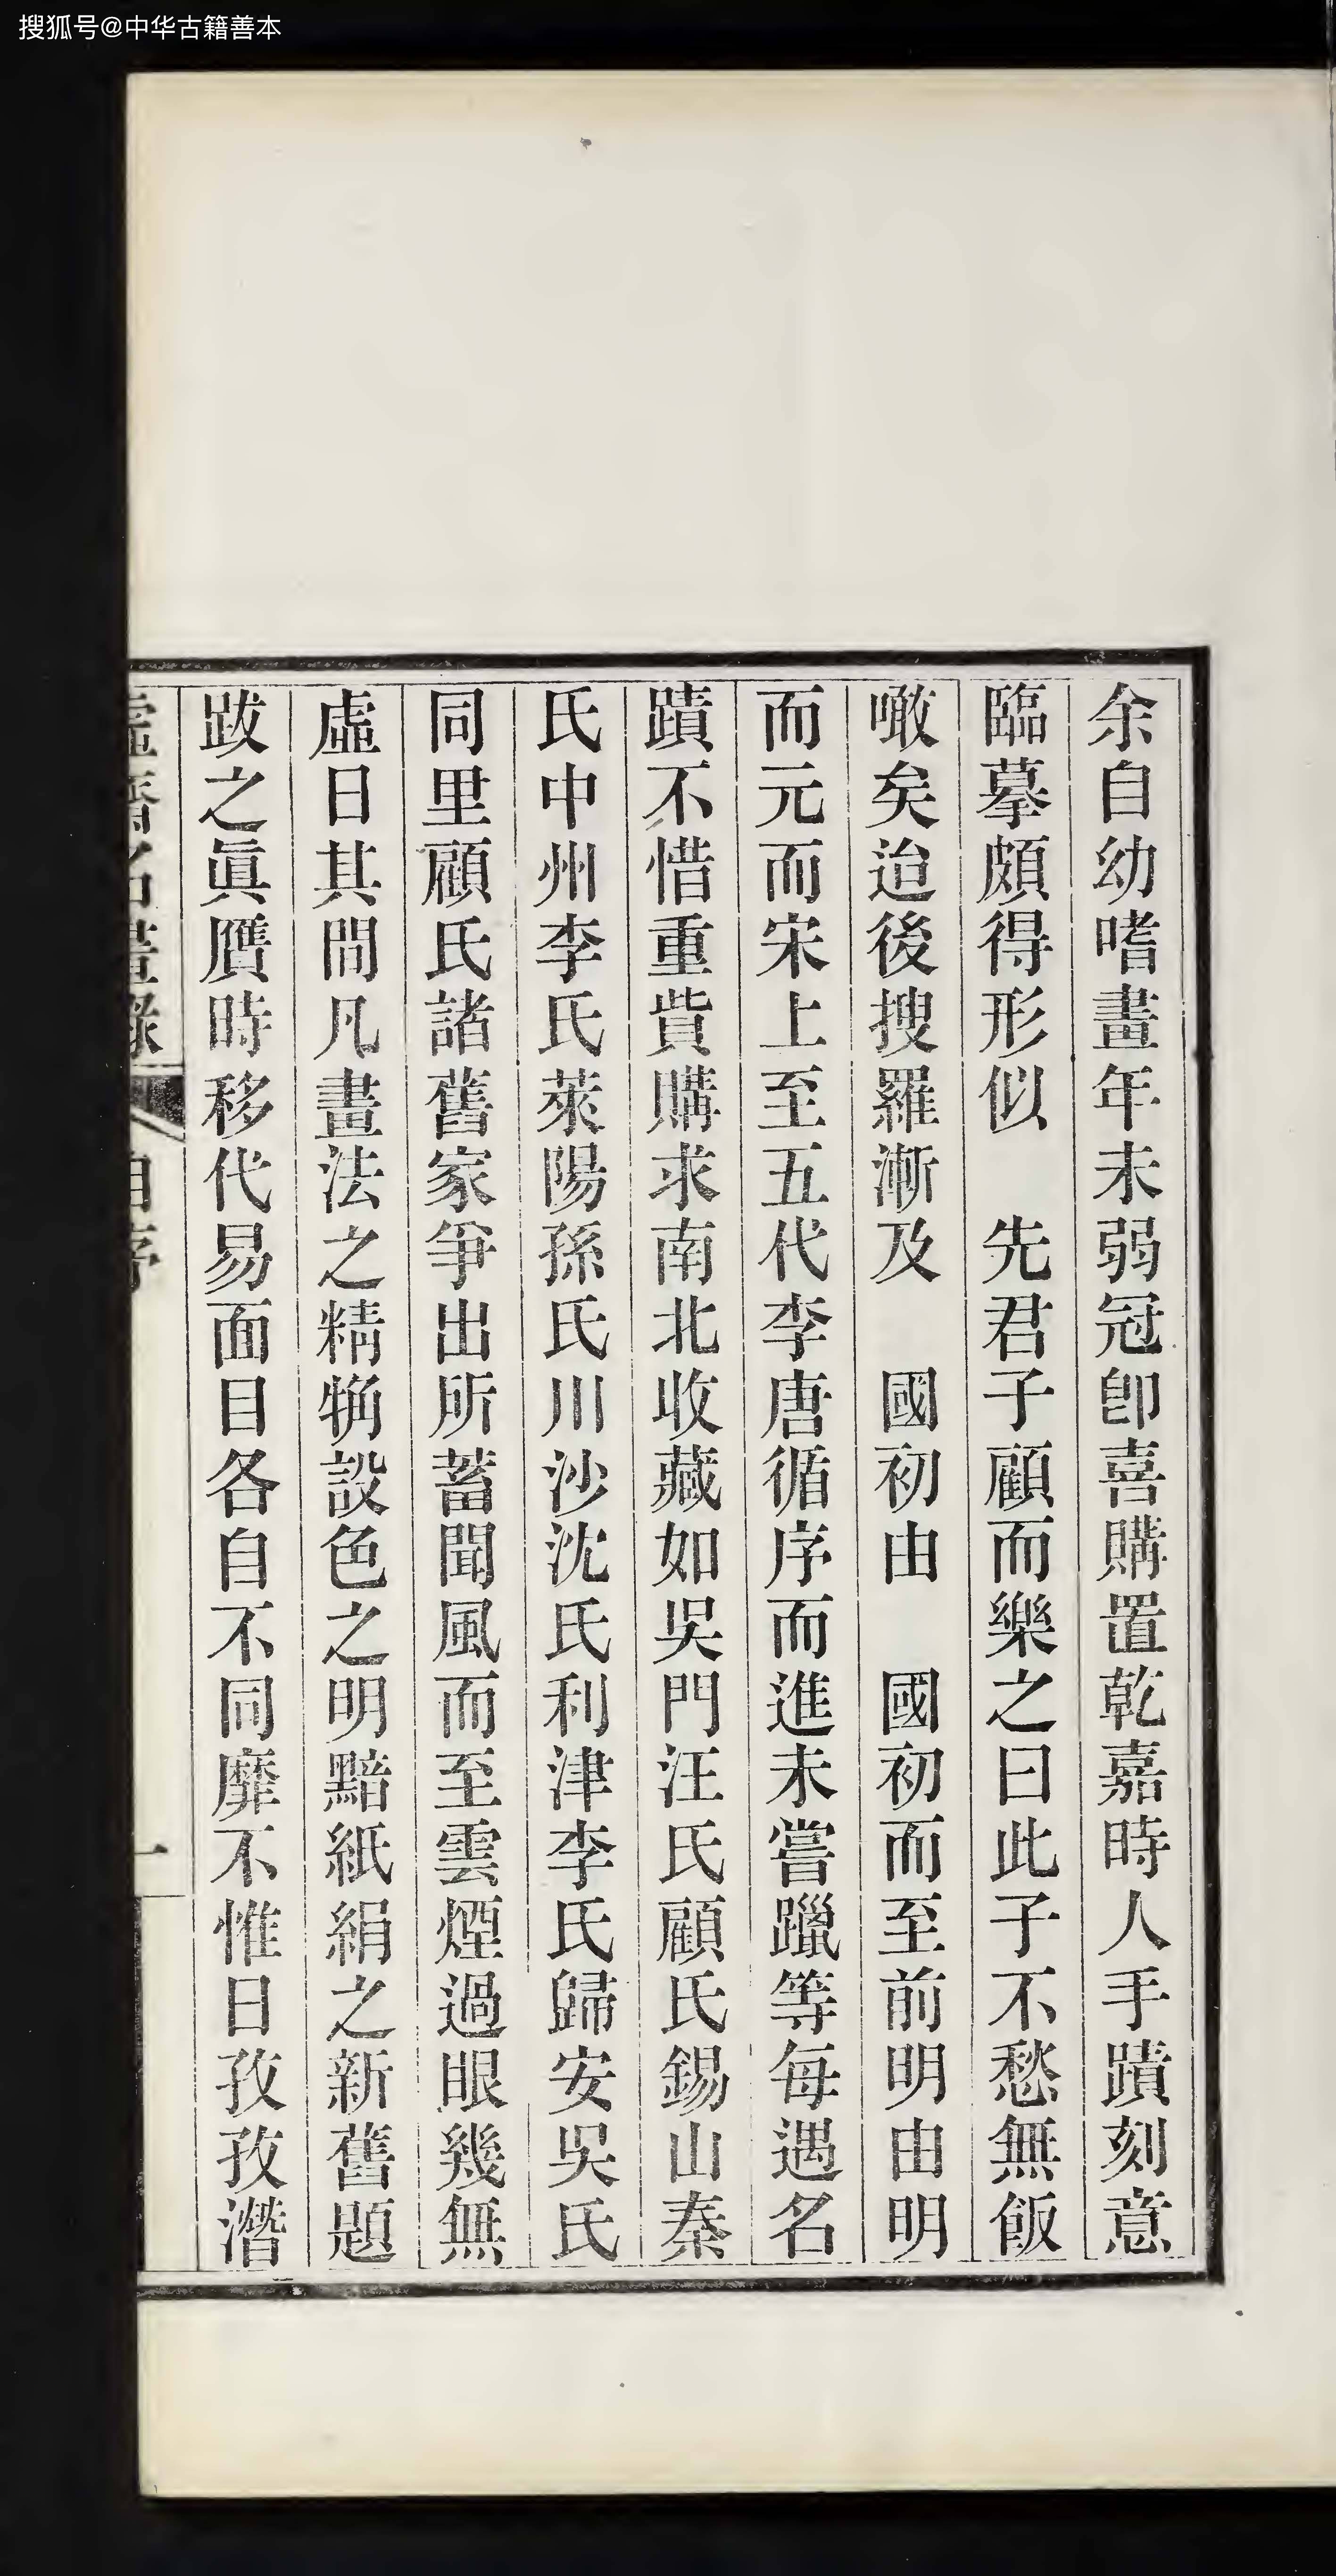 搜狐号@中华古籍善本
余自幼嗜畫年未弱冠卽喜購置乾嘉時人手蹟刻意
臨摹頗得形似　先君子顧而樂之曰此子不愁無飯
噉矣迨後搜羅漸及　國初由　國初而至前明由明
而元而宋上至五代李唐循序而進未嘗躐等每遇名
蹟不惜重貲購求南北收藏如吳門汪氏顧氏錫山秦
氏中州李氏萊陽孫氏川沙沈氏利津李氏歸安吳氏
同里顧氏諸舊家爭出所蓄聞風而至雲煙過眼幾無
虛日其間凡畫法之精觕設色之明黯紙絹之新舊題
跋之眞贋時移代易面目各自不同靡不惟日孜孜潛
虛齋名畫錄
自序
一